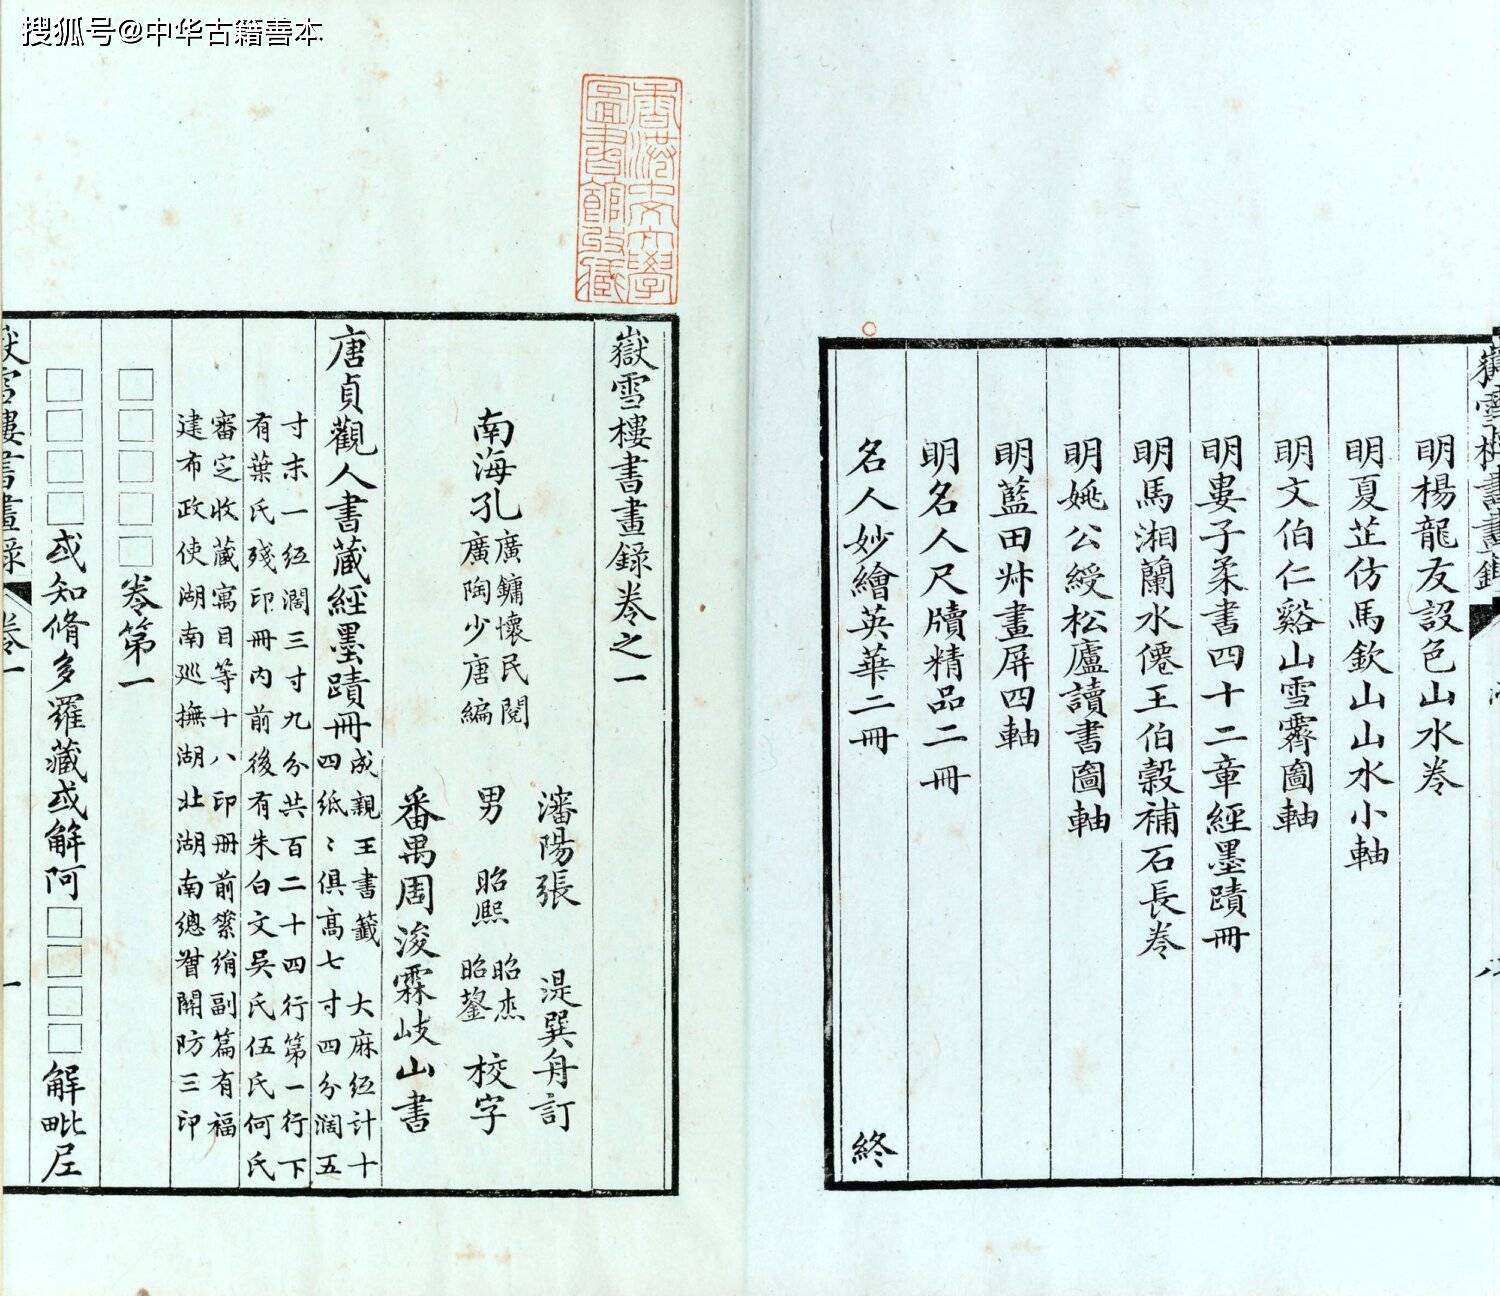 搜狐号@中华古籍善本
明楊龍友設色山水卷
明夏芷仿馬欽山山水小軸
明文伯仁谿山雪霽圖軸
明婁子柔書四十二章經墨蹟冊
明馬湘蘭水僊王伯穀補石長卷
明姚公綬松廬讀書圖軸
明藍田叔畫屏四軸
明名人尺牘精品二冊
名人妙繪英華二冊
終
香港中文大學
圖書館收藏
嶽雪樓書畫錄卷之一
瀋陽張 湜巽舟訂
南海孔廣鏞懷民閱
廣陶少唐編
男 昭熙 昭杰 昭鋆 校字
番禺周浚霖岐山書
唐貞觀人書藏經墨蹟冊
成親王書籤 大麻紙計十
四紙〻俱高七寸四分闊五
寸末一紙闊三寸九分共百二十四行第一行下
有葉氏殘印冊內前後有朱白文吳氏伍氏何氏
審定收藏寓目等十八印冊前綮綃副篇有福
建布政使湖南巡撫湖北湖南總督關防三印
□□□□□卷第一
□□□□或知脩多羅藏或解阿□□□□解毗尼
嶽雪樓書畫錄 卷一 一